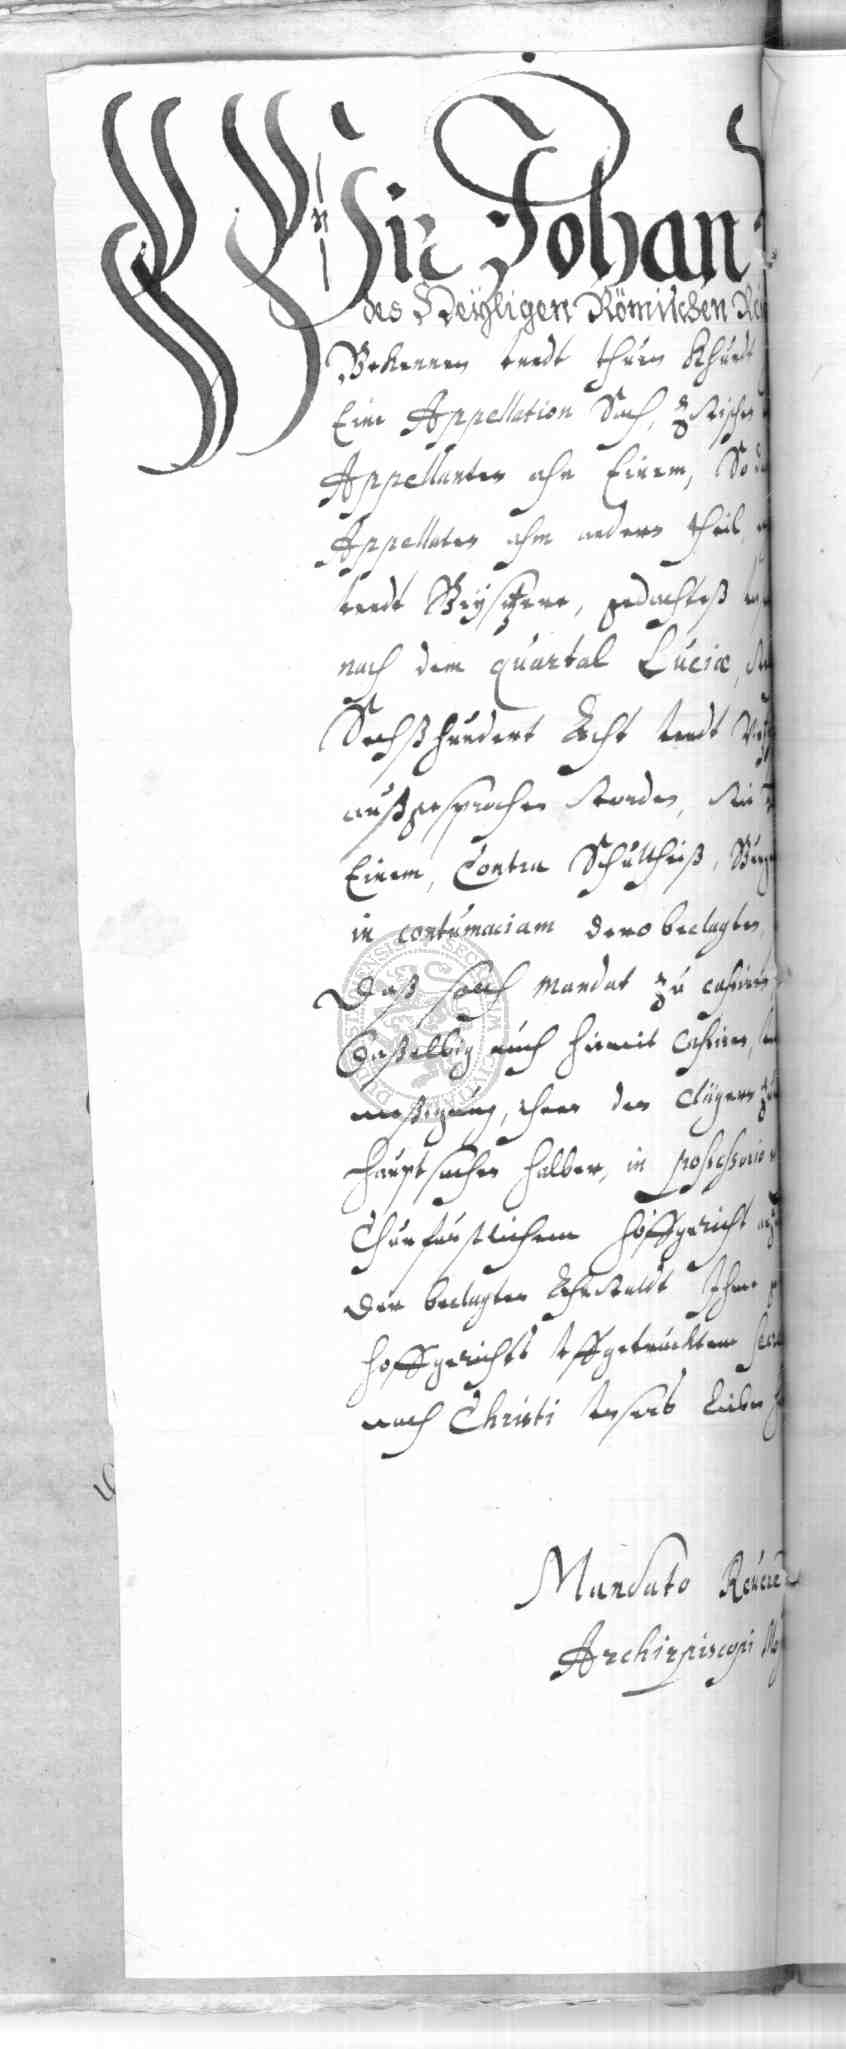 Wir Johan
des Heÿligen Römischen
Bekennen undt thuen Khundt
Eine Appellation Sach, zwischen
Appellanten ahn Einem, So
Appellaten ahm andern theil,
undt Beÿsitzere, gedachteß
nach dem quartal Luciæ,
Sechßhundert Acht undt
außgesprochen worden, wie
Einem, Contra Schultheiß,
in contumaciam dero beclagten,
Daß solch Mandat zu cassiren
Daßelbig auch hiemit Cassiren,
meßigung, ihme den Clägern
hauptsachen halber, in possessorio
Churfürstlichem hoffgericht
der beclagten Ahnwaldt Ihme
hoffgerichts uffgetrucktem
nach Christi unsers lieben
Mandato
Archiepiscopi